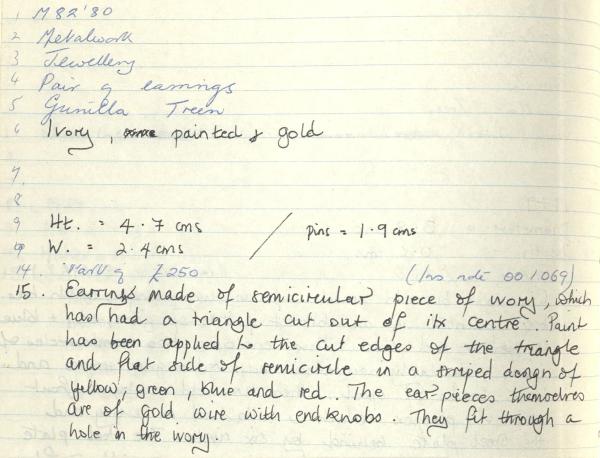 1 M 82'80
2 Metalwork
3 Jewellery
4 Pair of earrings
5 Gunilla Treen
6 Ivory, painted & gold
7.
8
9 Ht. = 4.7 cms / pins = 1.9 cms
W. = 2.4 cms
14. Part of £250 (Inv note 001069)
15. Earrings made of semicircular piece of ivory, which
has had a triangle cut out of its centre. Paint
has been applied to the cut edges of the triangle
and flat side of semicircle in a striped design of
yellow, green, blue and red. The ear pieces themselves
are of gold wire with end knobs. They fit through a
hole in the ivory.